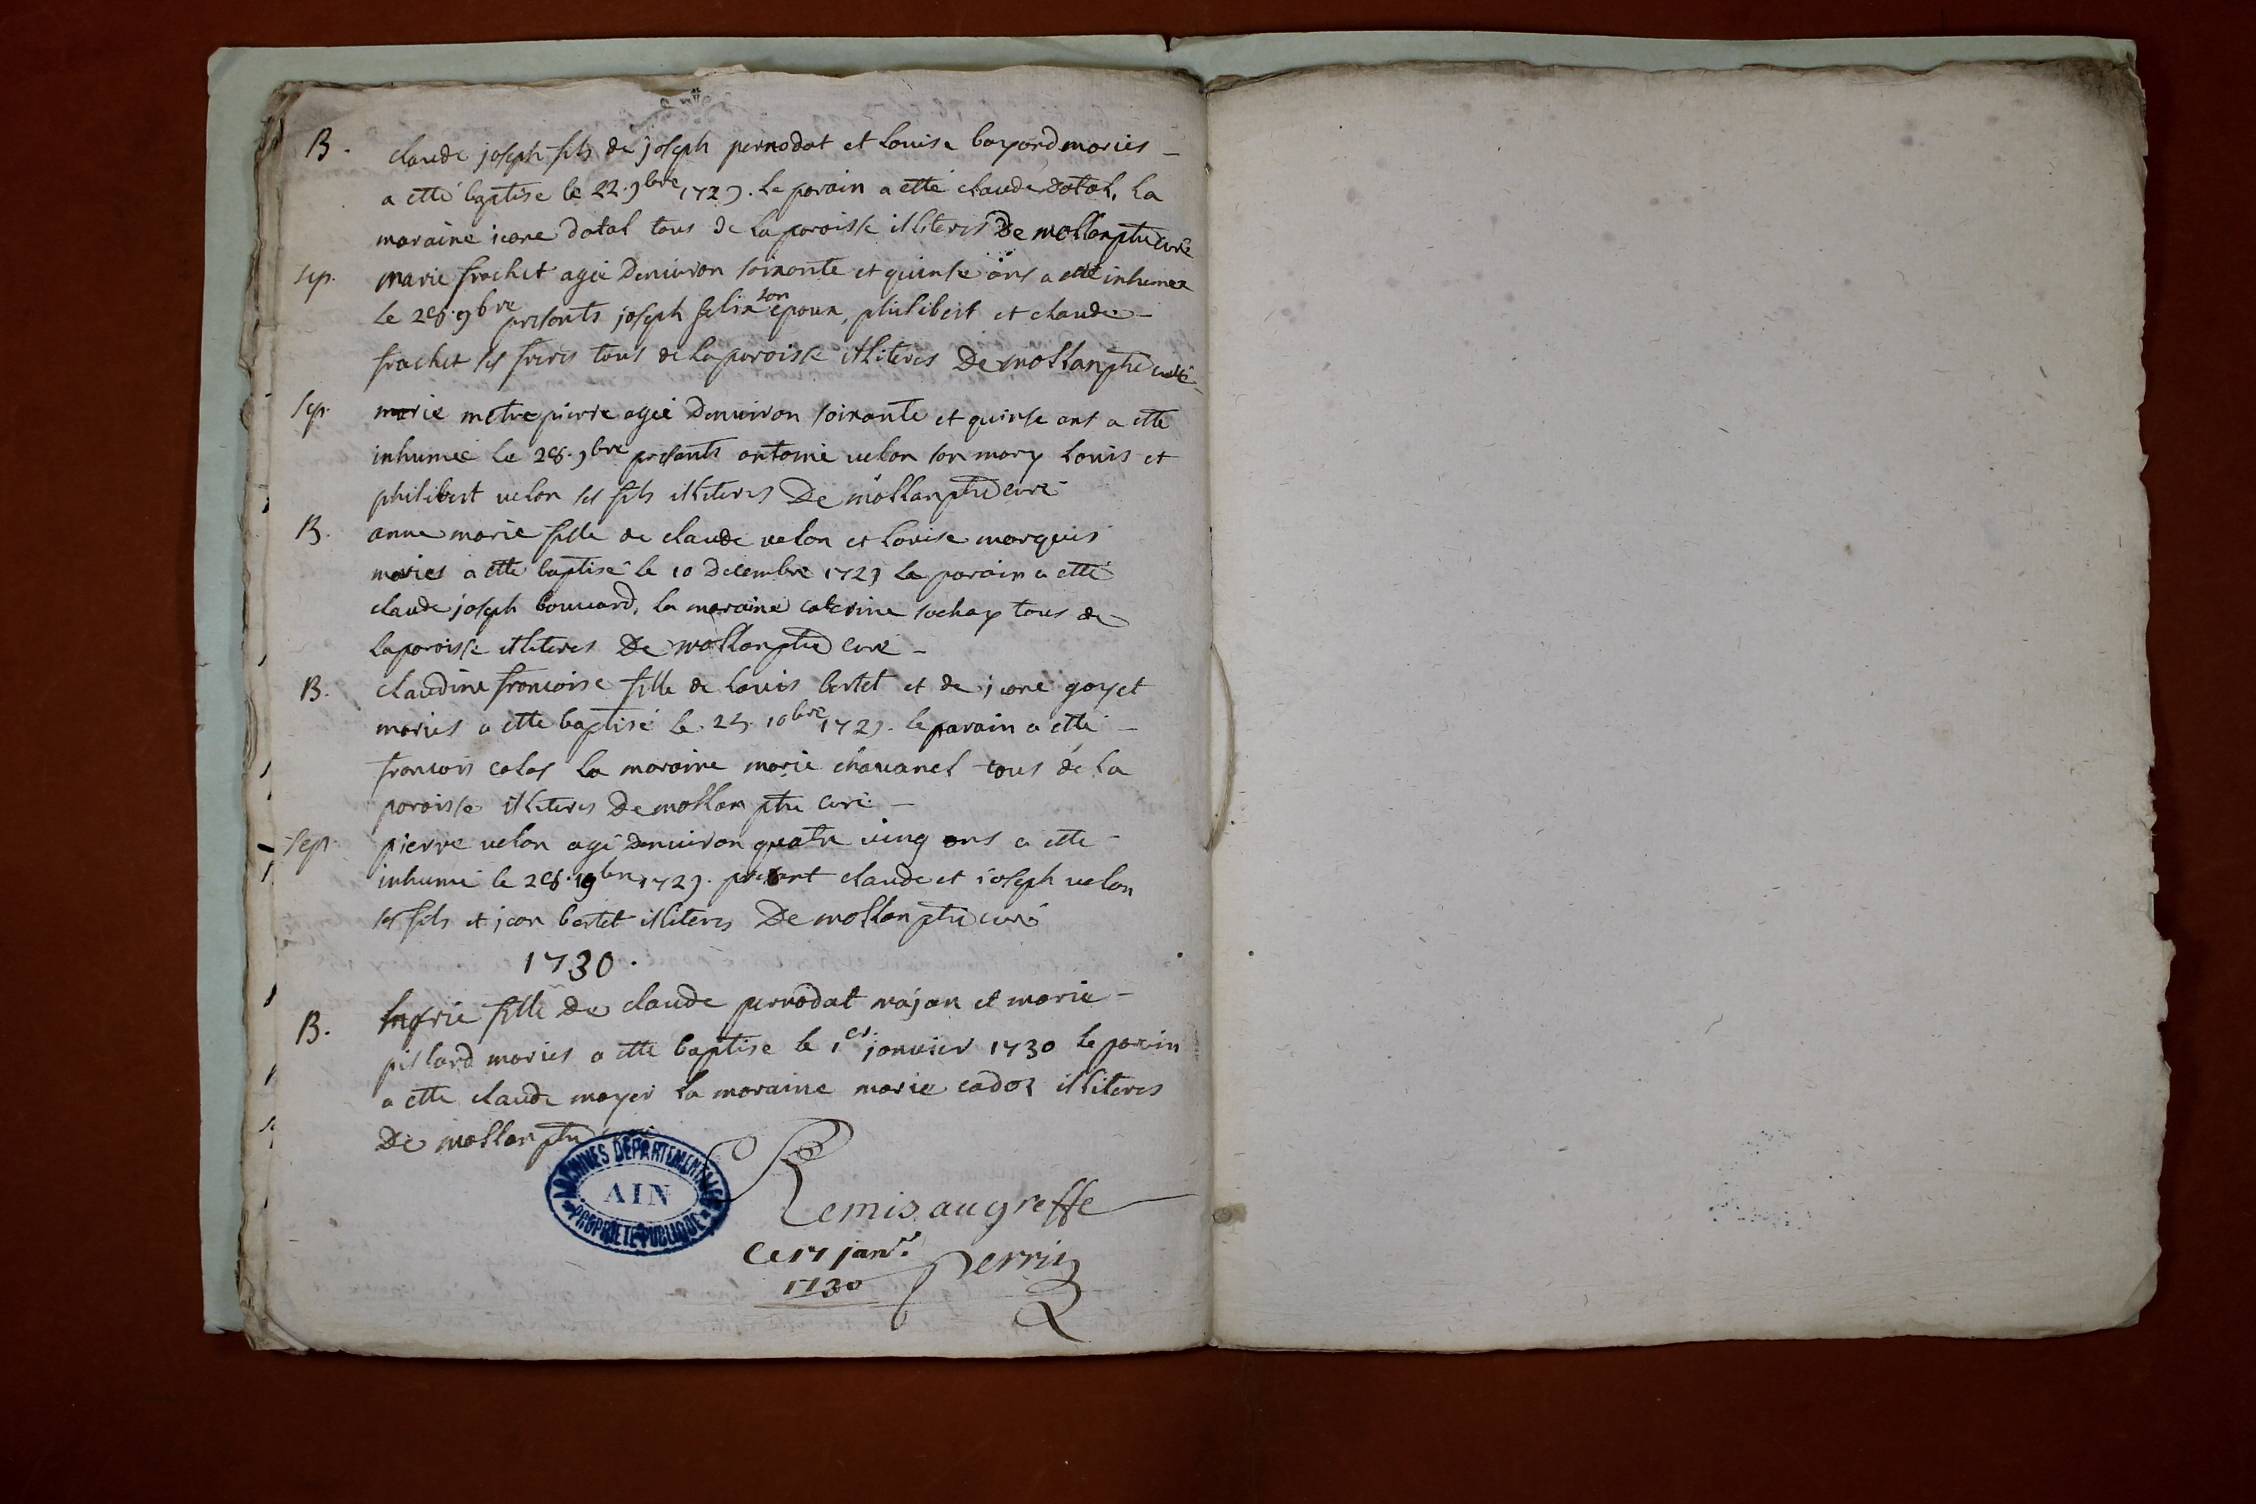 B. claude joseph fils de joseph pernodat et Louise bayard mariés
a etté baptisé le 22. 9bre 1729. Le parain a etté claude datal, La
maraine jeane datal tous de La paroisse illiterés De mollan ptre curé
sep. marie frachet agée Denviron soixante et quinse ans a etté inhumée
Le 28. 9bre presents joseph felix son epoux, philibert et claude
frachet ses freres tous de La paroisse illiterés De mollan ptre curé
sep. marie metrepierre agée Denviron soixante et quinse ans a etté
inhumée Le 28. 9bre presants antoine velon son mary Louis et
philibert velon ses fils illiterés De mollan ptre curé
B. anne marie fille de claude velon et Louise marquis
mariés a etté baptisé le 10 decembre 1729 Le parain a etté
claude joseph bouvard, La maraine caterine sochay tous de
La paroisse illiterés De mollan ptre curé
B. claudine francoise fille de Louis bertet et de jeane goyet
mariés a etté baptisé le 10bre 1729. le parain a etté
francois colas La maraine marie chavanel tous de La
paroisse illiterés De mollan ptre curé
sep. pierre velon agé denviron quatre ving ans a etté
inhumé le 28. bre 1729. present claude et joseph velon
ses fils et jean bertet illiterés De mollan ptre curé
1730.
B. marie fille De claude pernodat najan et marie
pillard mariés a etté baptise le 1er janvier 1730 Le parain
a etté claude moyer La maraine marie cadoz illiterés
De mollan ptre
ARCHIVES DEPARTEMENTALES
AIN
PROPRIETE PUBLIQUE
Remis au greffe
Ce 17 janr.
1730
Perrin